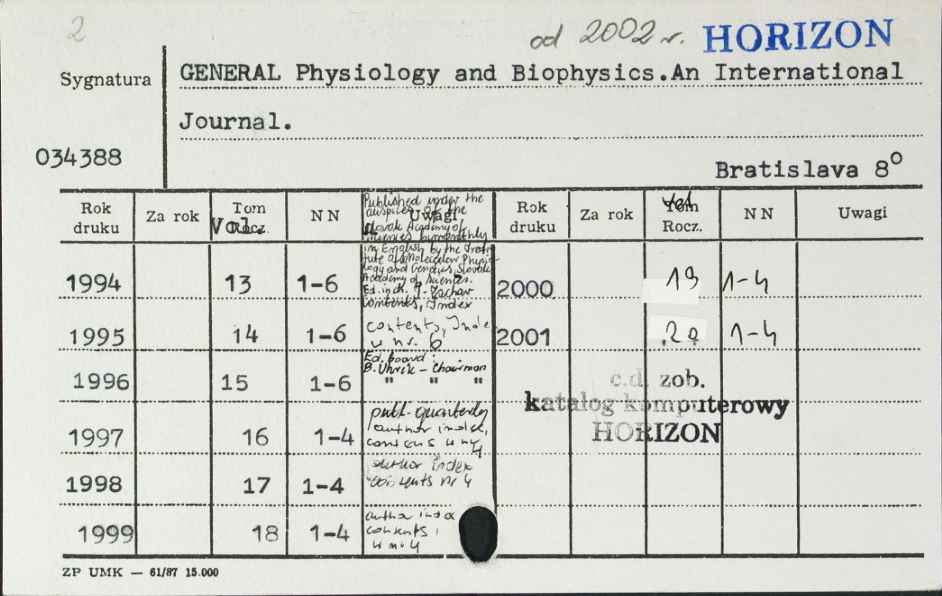 2
od 2002 r. HORIZON
Sygnatura
GENERAL Physiology and Biophysics.An International
Journal.
034388
Bratislava 8⁰
Rok druku Za rok Tom Rocz. Vol. NN Uwagi Rok druku Za rok Tom Rocz. vol NN Uwagi
Published under the
auspices of the
Slovak Academy of
Sciences bymonthly
in English by the Insti-
tute of Molecular Physio-
logy and Genetics Slovak
Academy of Sciences.
Ed. in ch. J. Zachar
Contents, Index
1994 13 1-6
2000 19 1-4
1995 14 1-6 contents, Inde
w nr. 6
2001 20 1-4
Ed. board:
B. Uhrík - Chairman
1996 15 1-6 " " "
c.d. zob.
katalog komputerowy
HORIZON
publ. quarterly
1997 16 1-4 author index,
contens w nr 4
author index
1998 17 1-4 contents nr 4
author index
1999 18 1-4 contents,
w nr 4
ZP UMK — 61/87 15.000